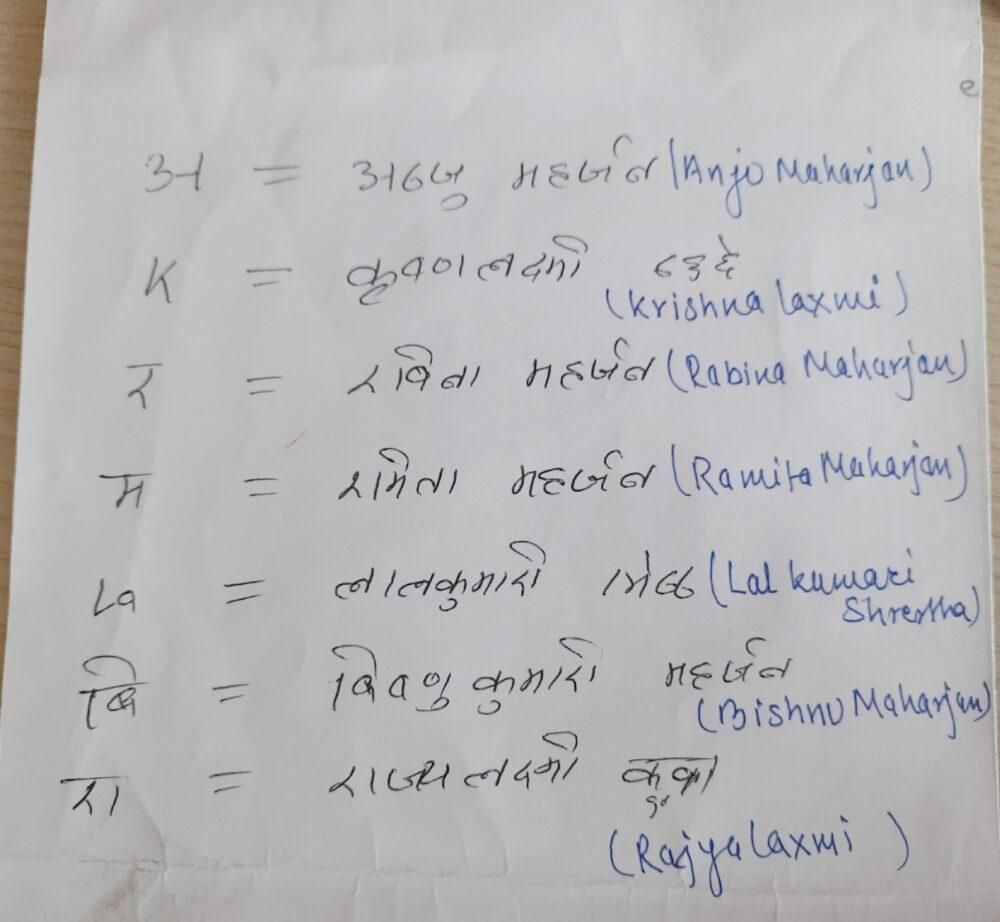 e
अ = अञ्जु महर्जन (Anjo Maharjan)
K = कृष्ण लक्ष्मी
(Krishna laxmi)
र = रबिना महर्जन (Rabina Maharjan)
म = रमिता महर्जन (Ramita Maharjan)
La = लालकुमारी श्रेष्ठ (Lal kumari
Shrestha)
बि = बिष्णु कुमारी महर्जन
(Bishnu Maharjan)
रा = राज्य लक्ष्मी
(Rajya laxmi)